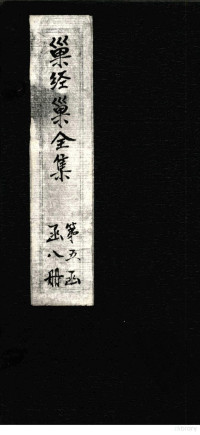 巢经巢全集
第五函
函八冊